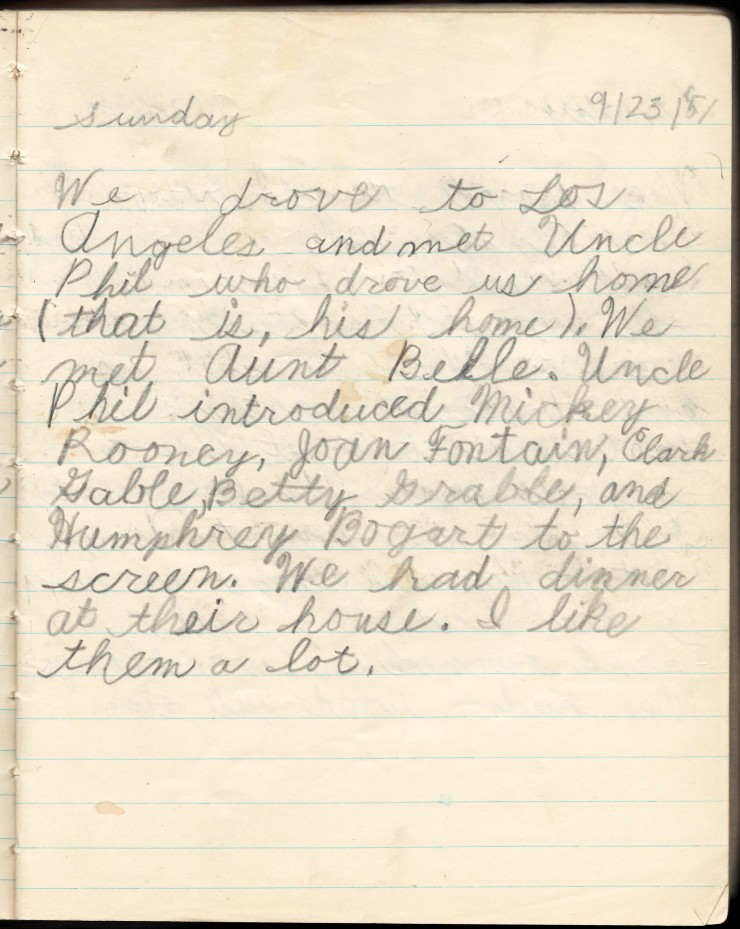 sunday 9/23/51
We drove to Los
Angeles and met Uncle
Phil who drove us home
(that is, his home). We
met Aunt Belle. Uncle
Phil introduced Mickey
Rooney, Joan Fontain, Clark
Gable, Betty Grable, and
Humphrey Bogart to the
screen. We had dinner
at their house. I like
them a lot.